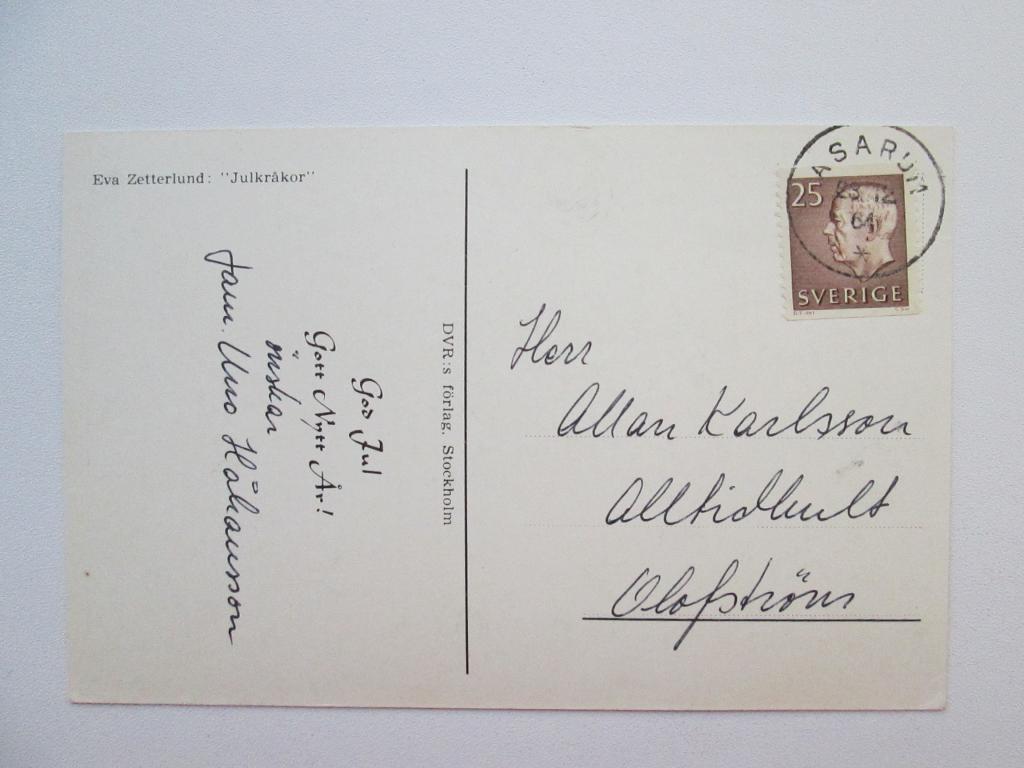 Eva Zetterlund: "Julkråkor"
God Jul
Gott Nytt År!
önskar
fam. Uno Håkansson
DVR:s förlag, Stockholm
ASARUM
12
64
25
SVERIGE
Herr
Allan Karlsson
Alltidhult
Olofström